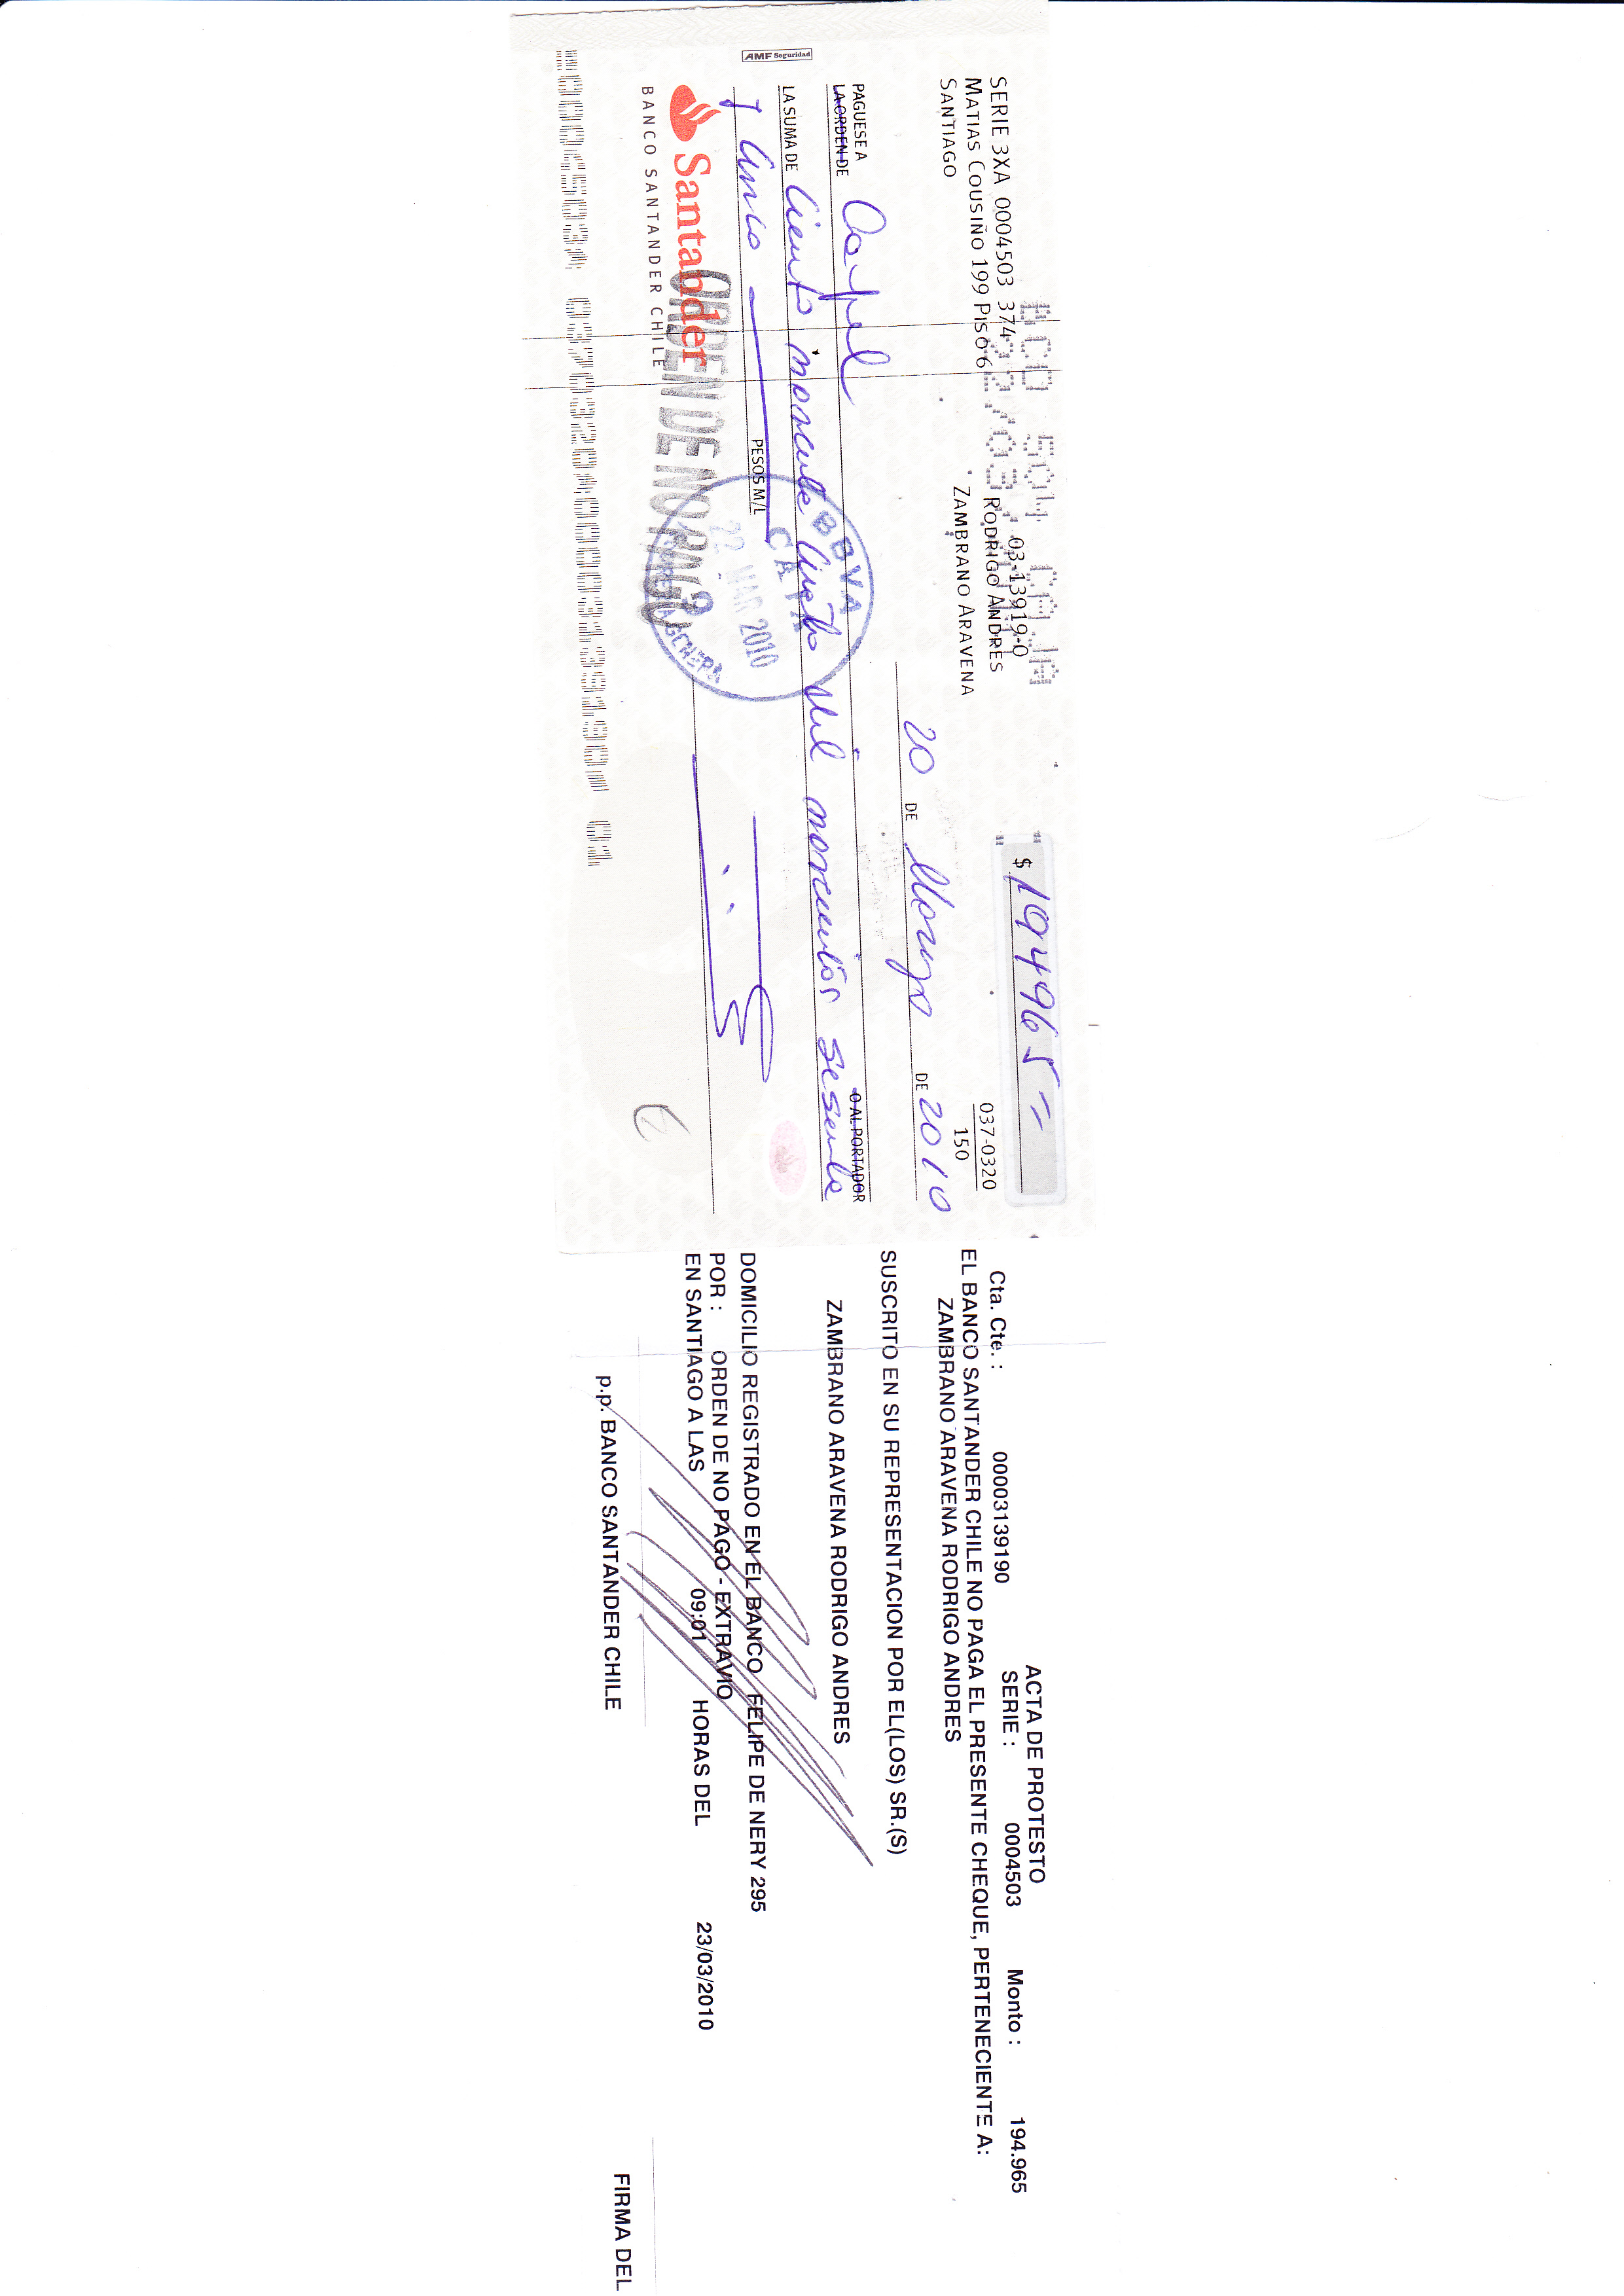 SERIE 3XA 0004503 374
MATIAS COUSIÑO 199 PISO 6
SANTIAGO
03-13919-0
RODRIGO ANDRES
ZAMBRANO ARAVENA
$ 194965=
037-0320
150
20 DE Marzo DE 2010
PAGUESE A
LA ORDEN DE
O AL PORTADOR
LA SUMA DE Ciento noventa Cuatro Mil novecientos Sesenta
y Cinco PESOS M/L
AMF Seguridad
Santander
BANCO SANTANDER CHILE
ORDEN DE NO PAGO
BBVA
CAJA
22 MAR 2010
ACTA DE PROTESTO
Cta. Cte. : 00003139190 SERIE : 0004503 Monto : 194.965
EL BANCO SANTANDER CHILE NO PAGA EL PRESENTE CHEQUE, PERTENECIENTE A:
ZAMBRANO ARAVENA RODRIGO ANDRES
SUSCRITO EN SU REPRESENTACION POR EL(LOS) SR.(S)
ZAMBRANO ARAVENA RODRIGO ANDRES
DOMICILIO REGISTRADO EN EL BANCO FELIPE DE NERY 295
POR : ORDEN DE NO PAGO - EXTRAVIO
EN SANTIAGO A LAS 09:01 HORAS DEL 23/03/2010
p.p. BANCO SANTANDER CHILE
FIRMA DEL